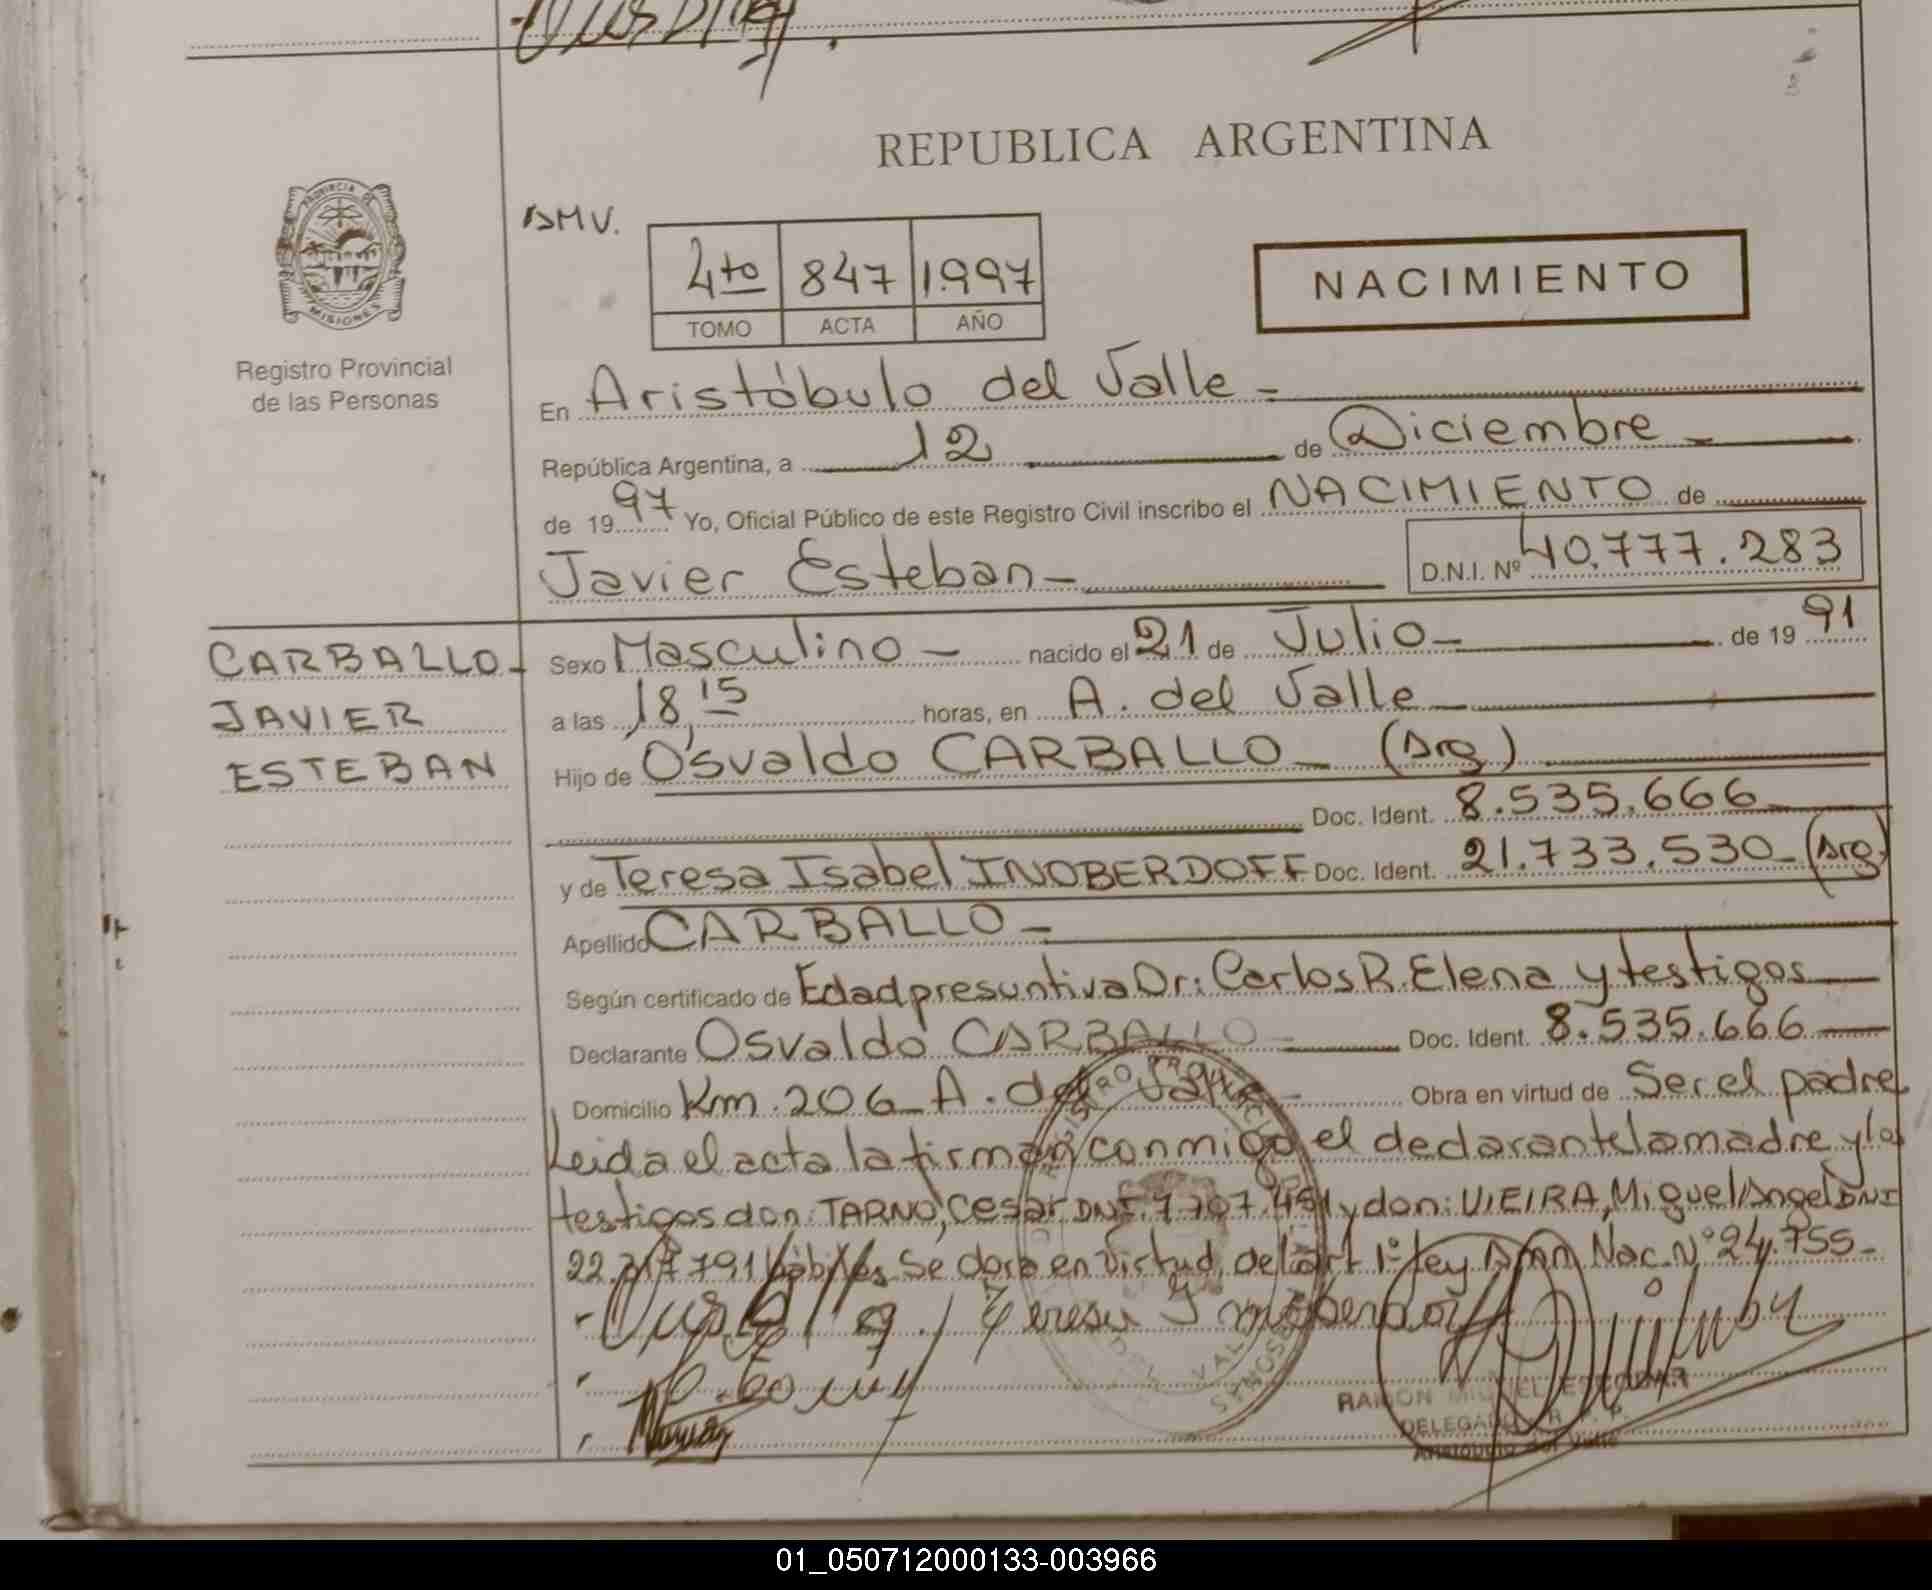 REPUBLICA ARGENTINA
PROVINCIA DE
MISIONES
Registro Provincial
de las Personas
4to 847 1.997
TOMO ACTA AÑO
NACIMIENTO
En Aristóbulo del Valle -
República Argentina, a 12 de Diciembre -
de 1997 Yo, Oficial Público de este Registro Civil inscribo el NACIMIENTO de
Javier Esteban - D.N.I. Nº 40.777.283
CARBALLO -
JAVIER
ESTEBAN
Sexo Masculino - nacido el 21 de Julio - de 1991
a las 18,15 horas, en A. del Valle -
Hijo de Osvaldo CARBALLO - (Arg)
Doc. Ident. 8.535.666 -
y de Teresa Isabel INOBERDOFF Doc. Ident. 21.733.530 - (Arg)
Apellido CARBALLO -
Según certificado de Edad presuntiva Dr: Carlos R. Elena y testigos
Declarante Osvaldo CARBALLO - Doc. Ident. 8.535.666
Domicilio Km. 206 A. del Valle - Obra en virtud de Ser el padre
Leida el acta la firman conmigo el declarante la madre y los
testigos don: TARNO, Cesar DNI. 7707.451 y don: VIEIRA, Miguel Angel DNI
22.217791 hábiles. Se dora en virtud del art 1º ley Amn Nac. Nº 24.755 -
RAMON MIGUEL ESCOBAR
DELEGADO R. P. P.
Aristóbulo del Valle
01_050712000133-003966